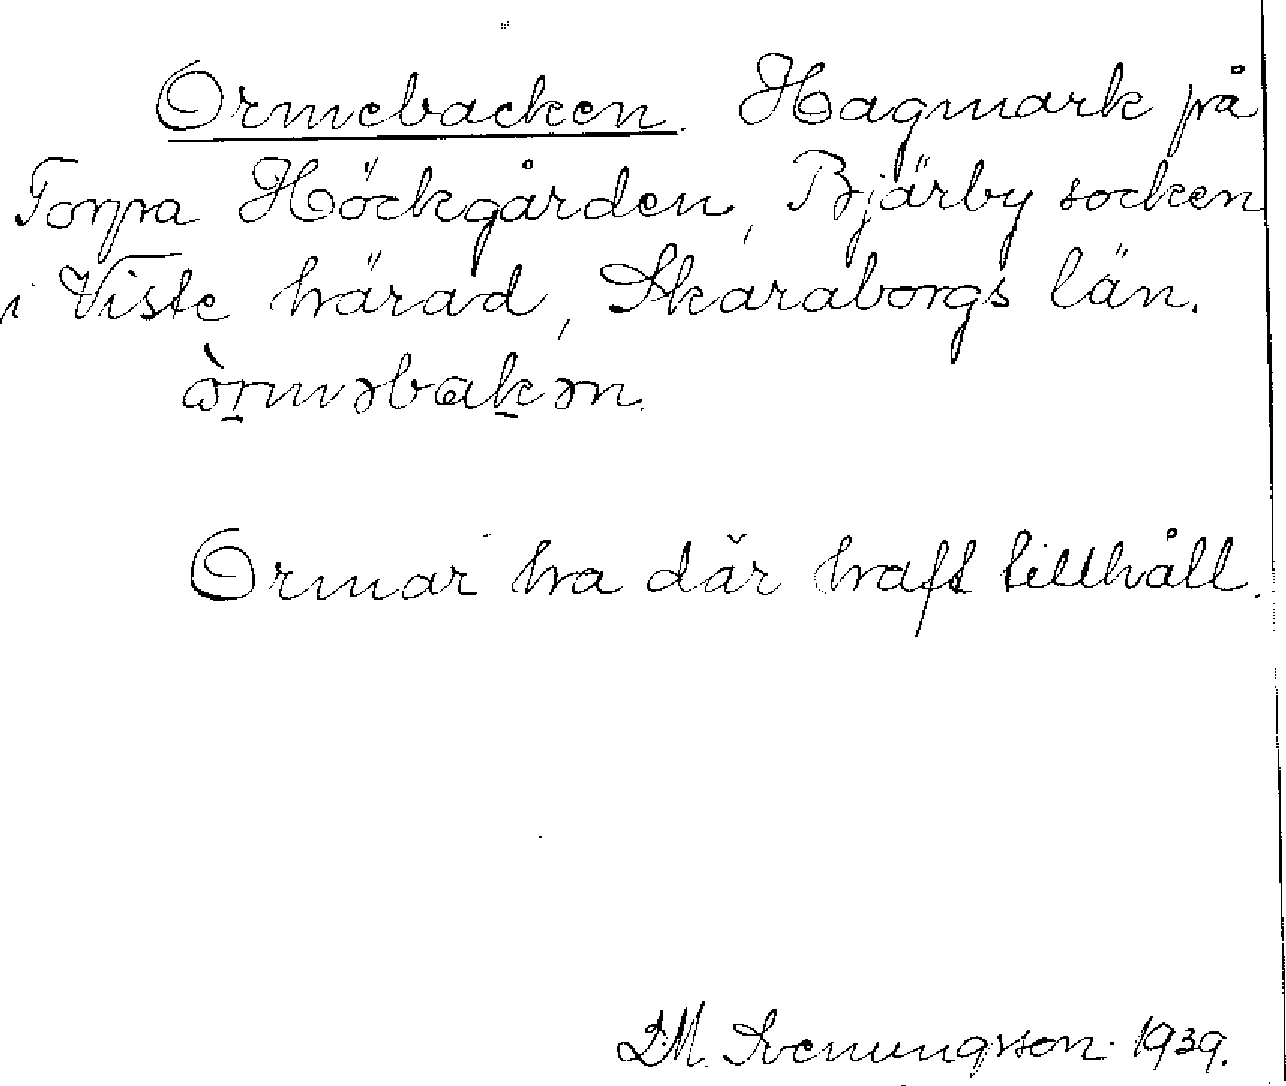 Ormebacken. Hagmark på
Torpa Höckgården, Bjärby socken
i Viste härad, Skaraborgs län.
òrməbakən.
Ormar ha där haft tillhåll.
D.M. Svenungsson 1939.